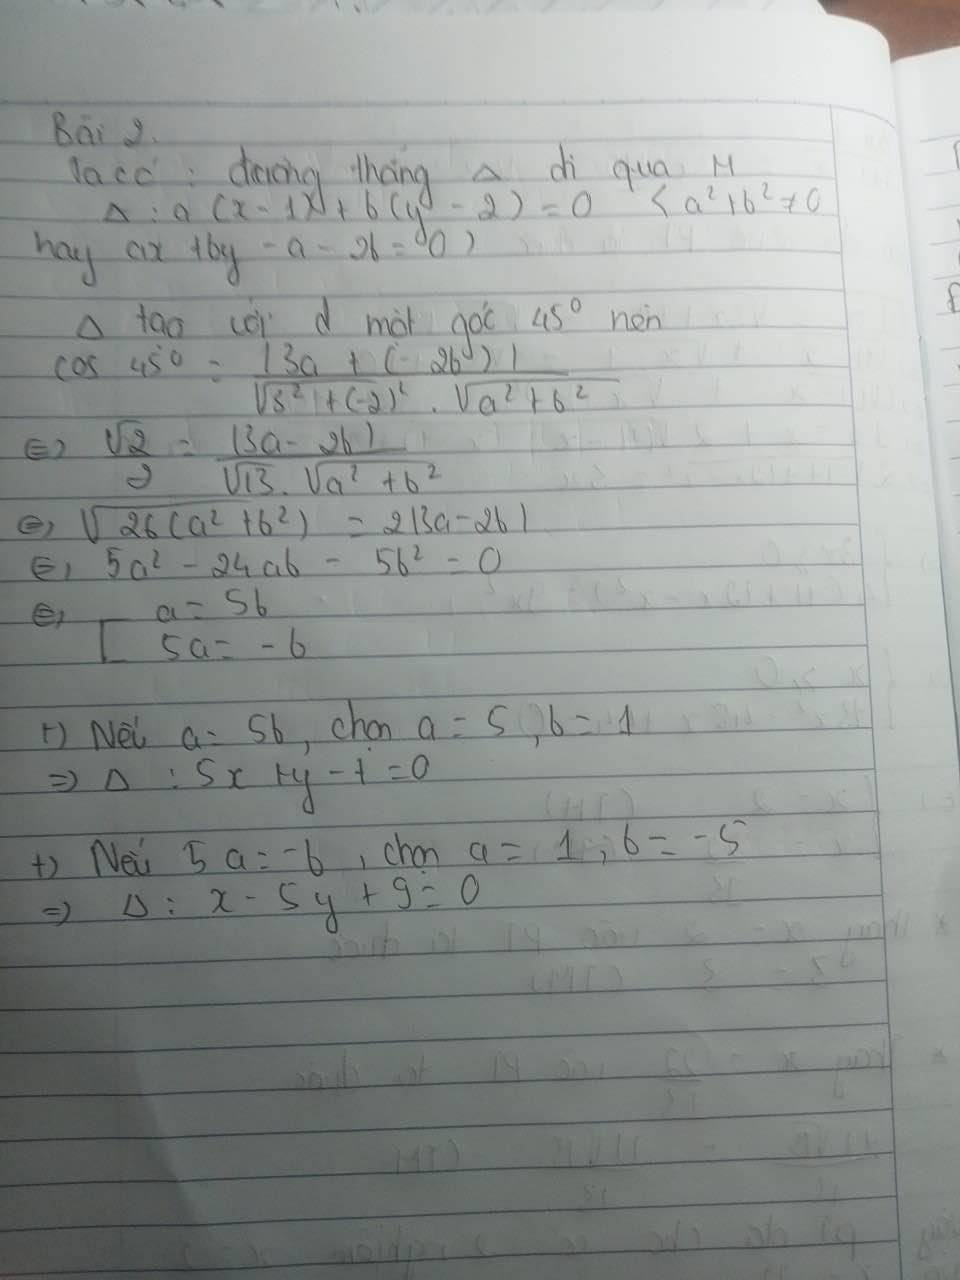 Bài 2.
Ta có : đường thẳng Δ đi qua M
Δ : a (x - 1) + b (y - 2) = 0 ( a² + b² ≠ 0
hay ax + by - a - 2b = 0 )
Δ tạo với d một góc 45° nên
cos 45° = |3a + (- 2b)| / √3² + (-2)² . √a² + b²
⇔ √2 / 2 = |3a - 2b| / √13 . √a² + b²
⇔ √26 (a² + b²) = 2|3a - 2b|
⇔ 5a² - 24ab - 5b² = 0
⇔ [ a = 5b
5a = - b
+) Nếu a = 5b, chọn a = 5, b = 1
⇒ Δ : 5x + y - 7 = 0
+) Nếu 5a = -b, chọn a = 1, b = -5
⇒ Δ : x - 5y + 9 = 0